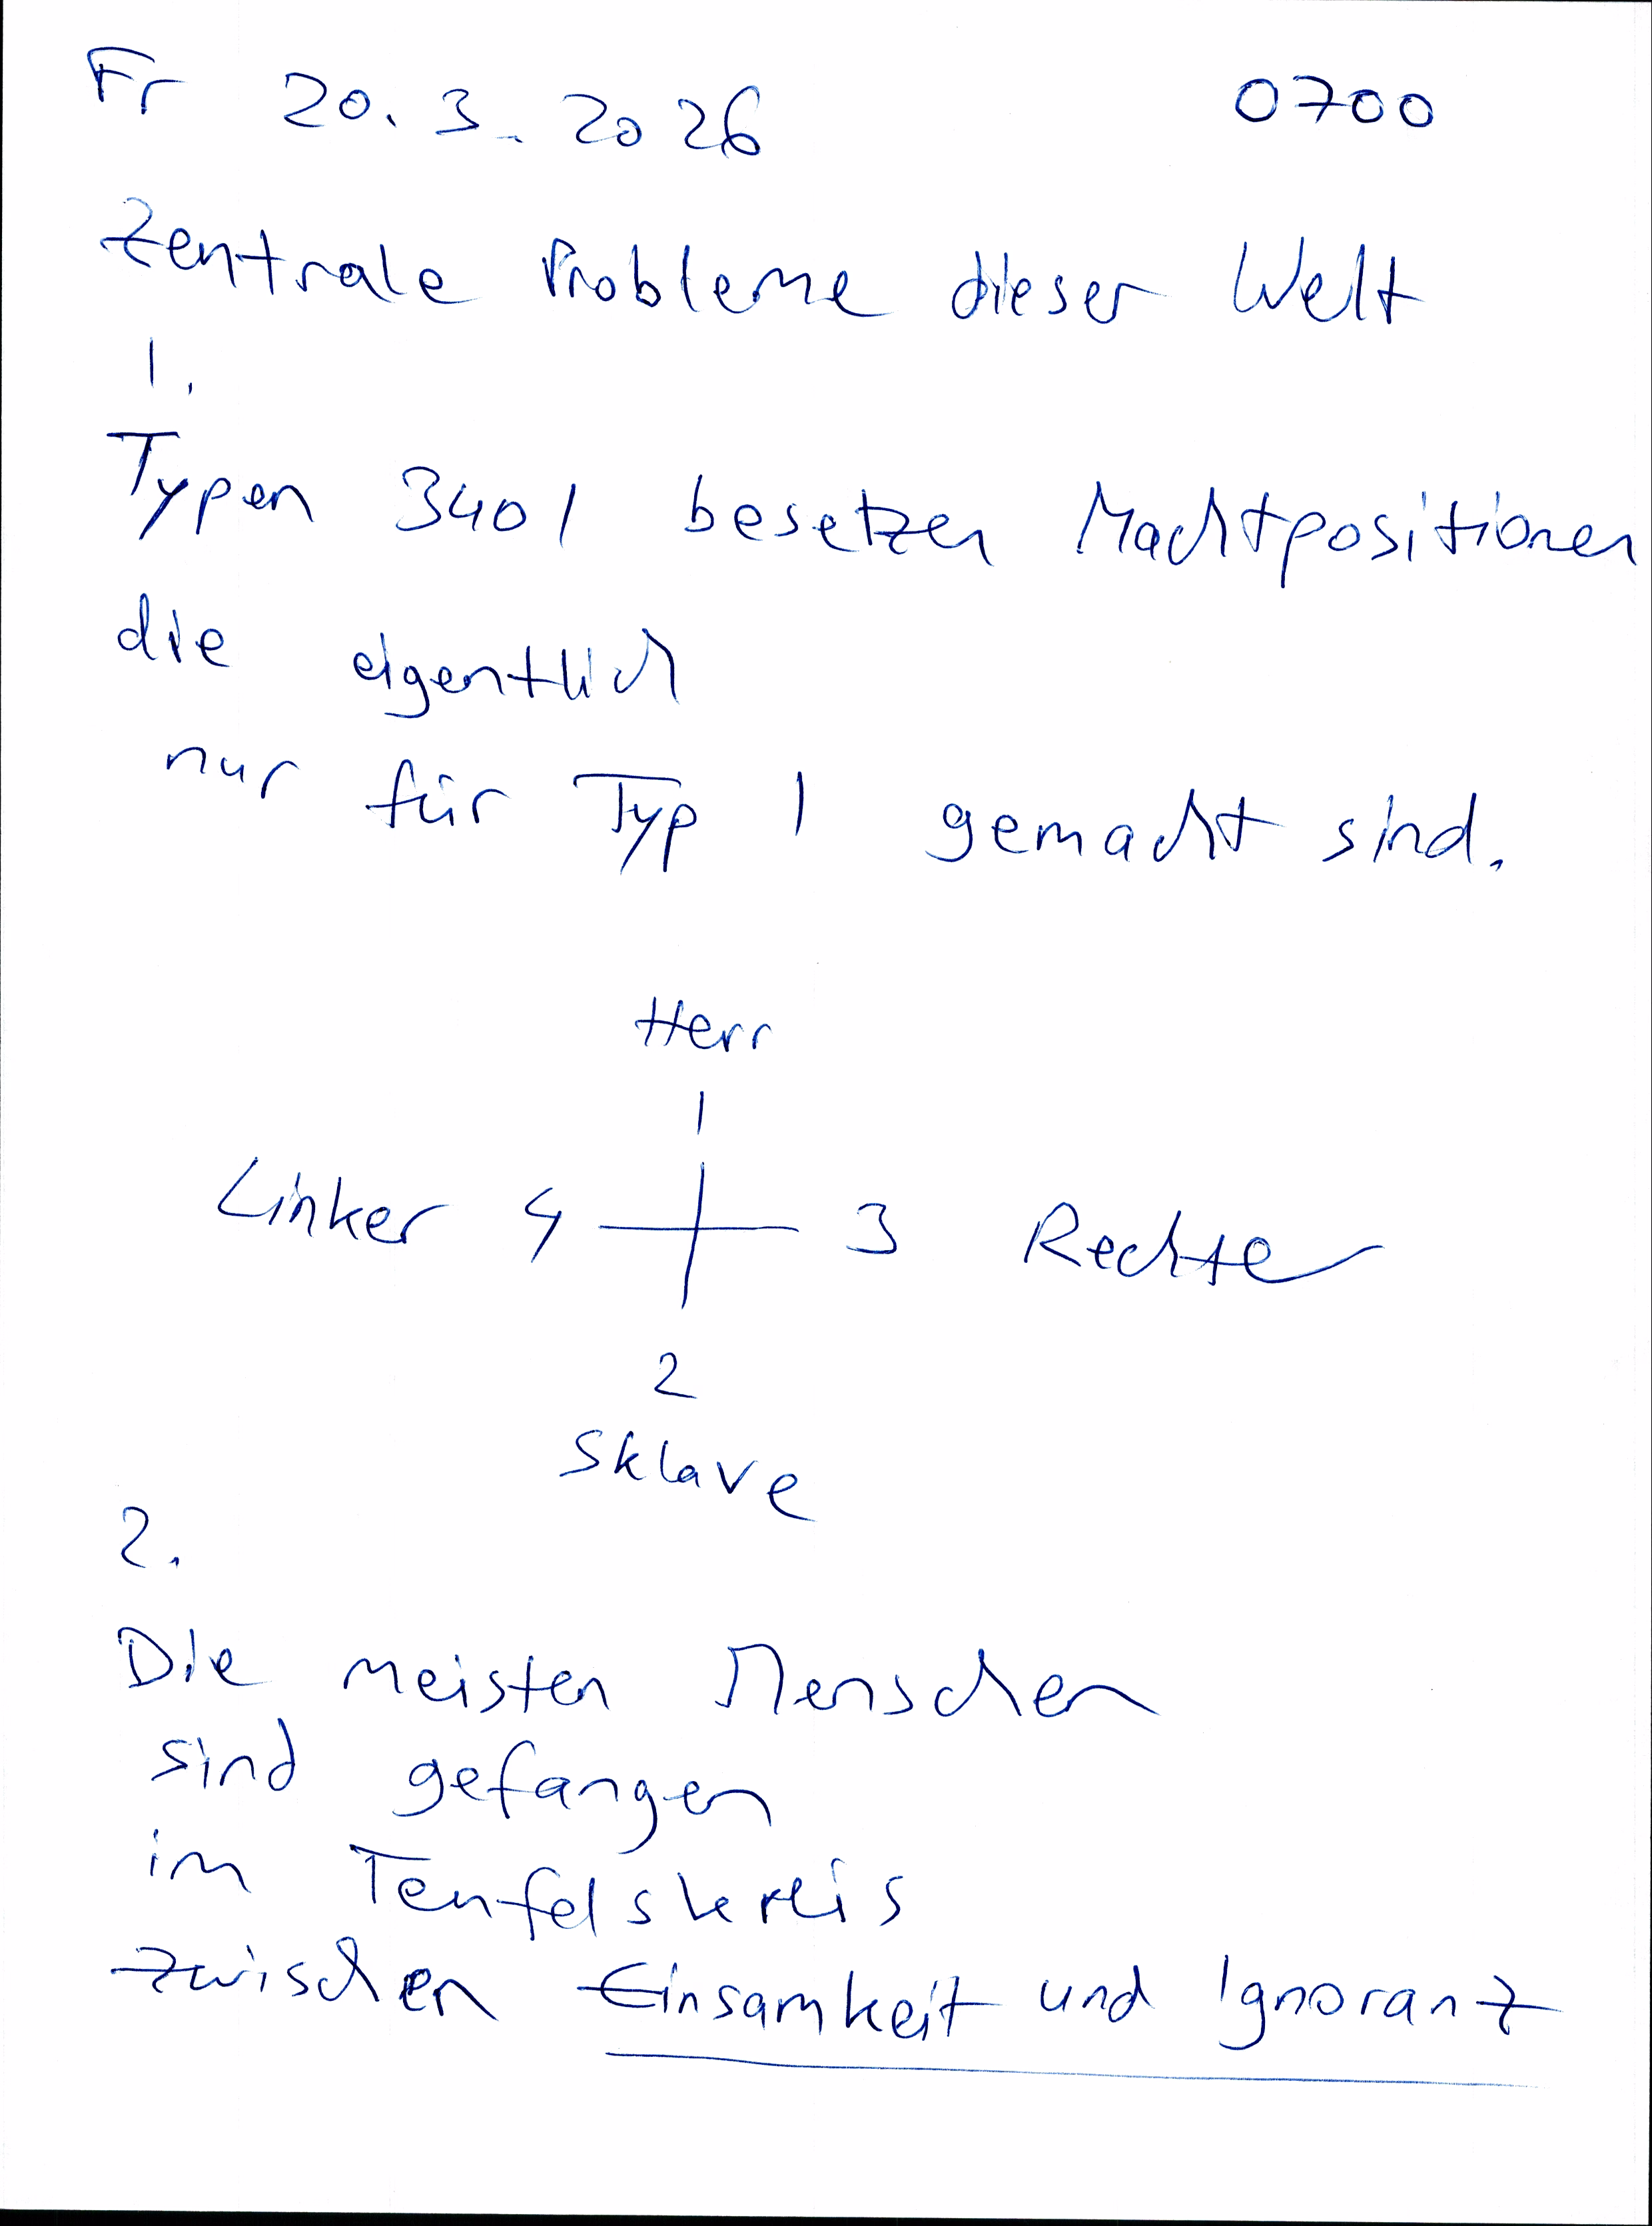 Fr 20.3.2026 0700
Zentrale Probleme dieser Welt
1.
Typen 3401 besetzen Machtpositionen
die eigentlich
nur für Typ 1 gemacht sind.
Herr
1
Linker 4 3 Rechte
2
Sklave
2.
Die meisten Menschen
sind gefangen
im Teufelskreis
zwischen Einsamkeit und Ignoranz